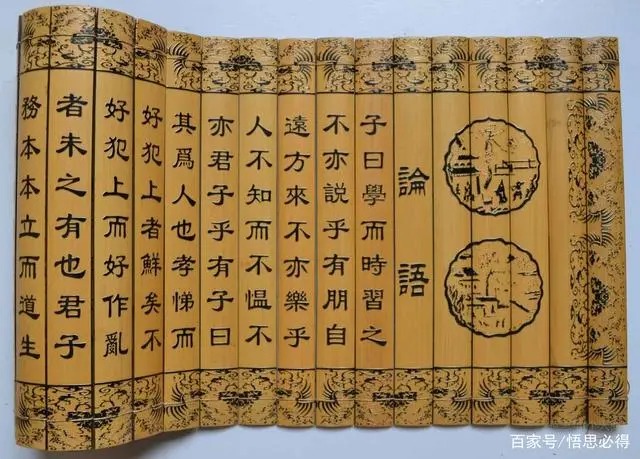 論語
子曰學而時習之
不亦説乎有朋自
遠方來不亦樂乎
人不知而不愠不
亦君子乎有子曰
其爲人也孝悌而
好犯上者鮮矣不
好犯上而好作亂
者未之有也君子
務本本立而道生
百家号/悟思必得